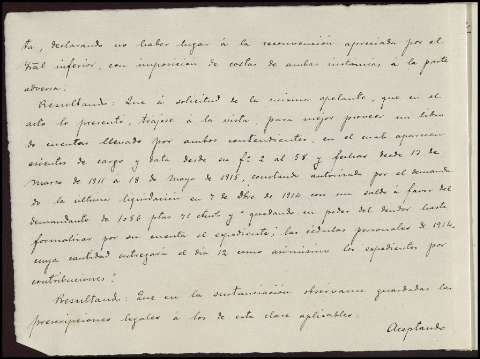 ta, declarando no haber lugar á la reconvención apreciada por el
Tral inferior, con imposición de costas de ambas instancias á la parte
adversa;
Resultando: Que á solicitud de la misma apelante, que en el
acto lo presentó, trájose á la vista, para mejor proveer un libro
de cuentas llevado por ambos contendientes, en el cual aparecen
asientos de cargo y data desde su fº 2 al 58 y fechas desde 17 de
Marzo de 1911 á 18 de Mayo de 1915, constando autorizada por el demanda
do la última liquidación en 7 de Dbre de 1914 con un saldo á favor del
demandante de 1056 ptas 71 cts y quedando en poder del deudor hasta
formalizar por su cuenta el expediente; las cédulas personales de 1914,
cuya cantidad entregaría el día 12 como asimismo los expedientes por
contribuciones;
Resultando: Que en la sustanciación obsérvanse guardadas las
prescripciones legales á los de esta clase aplicables.
Aceptando